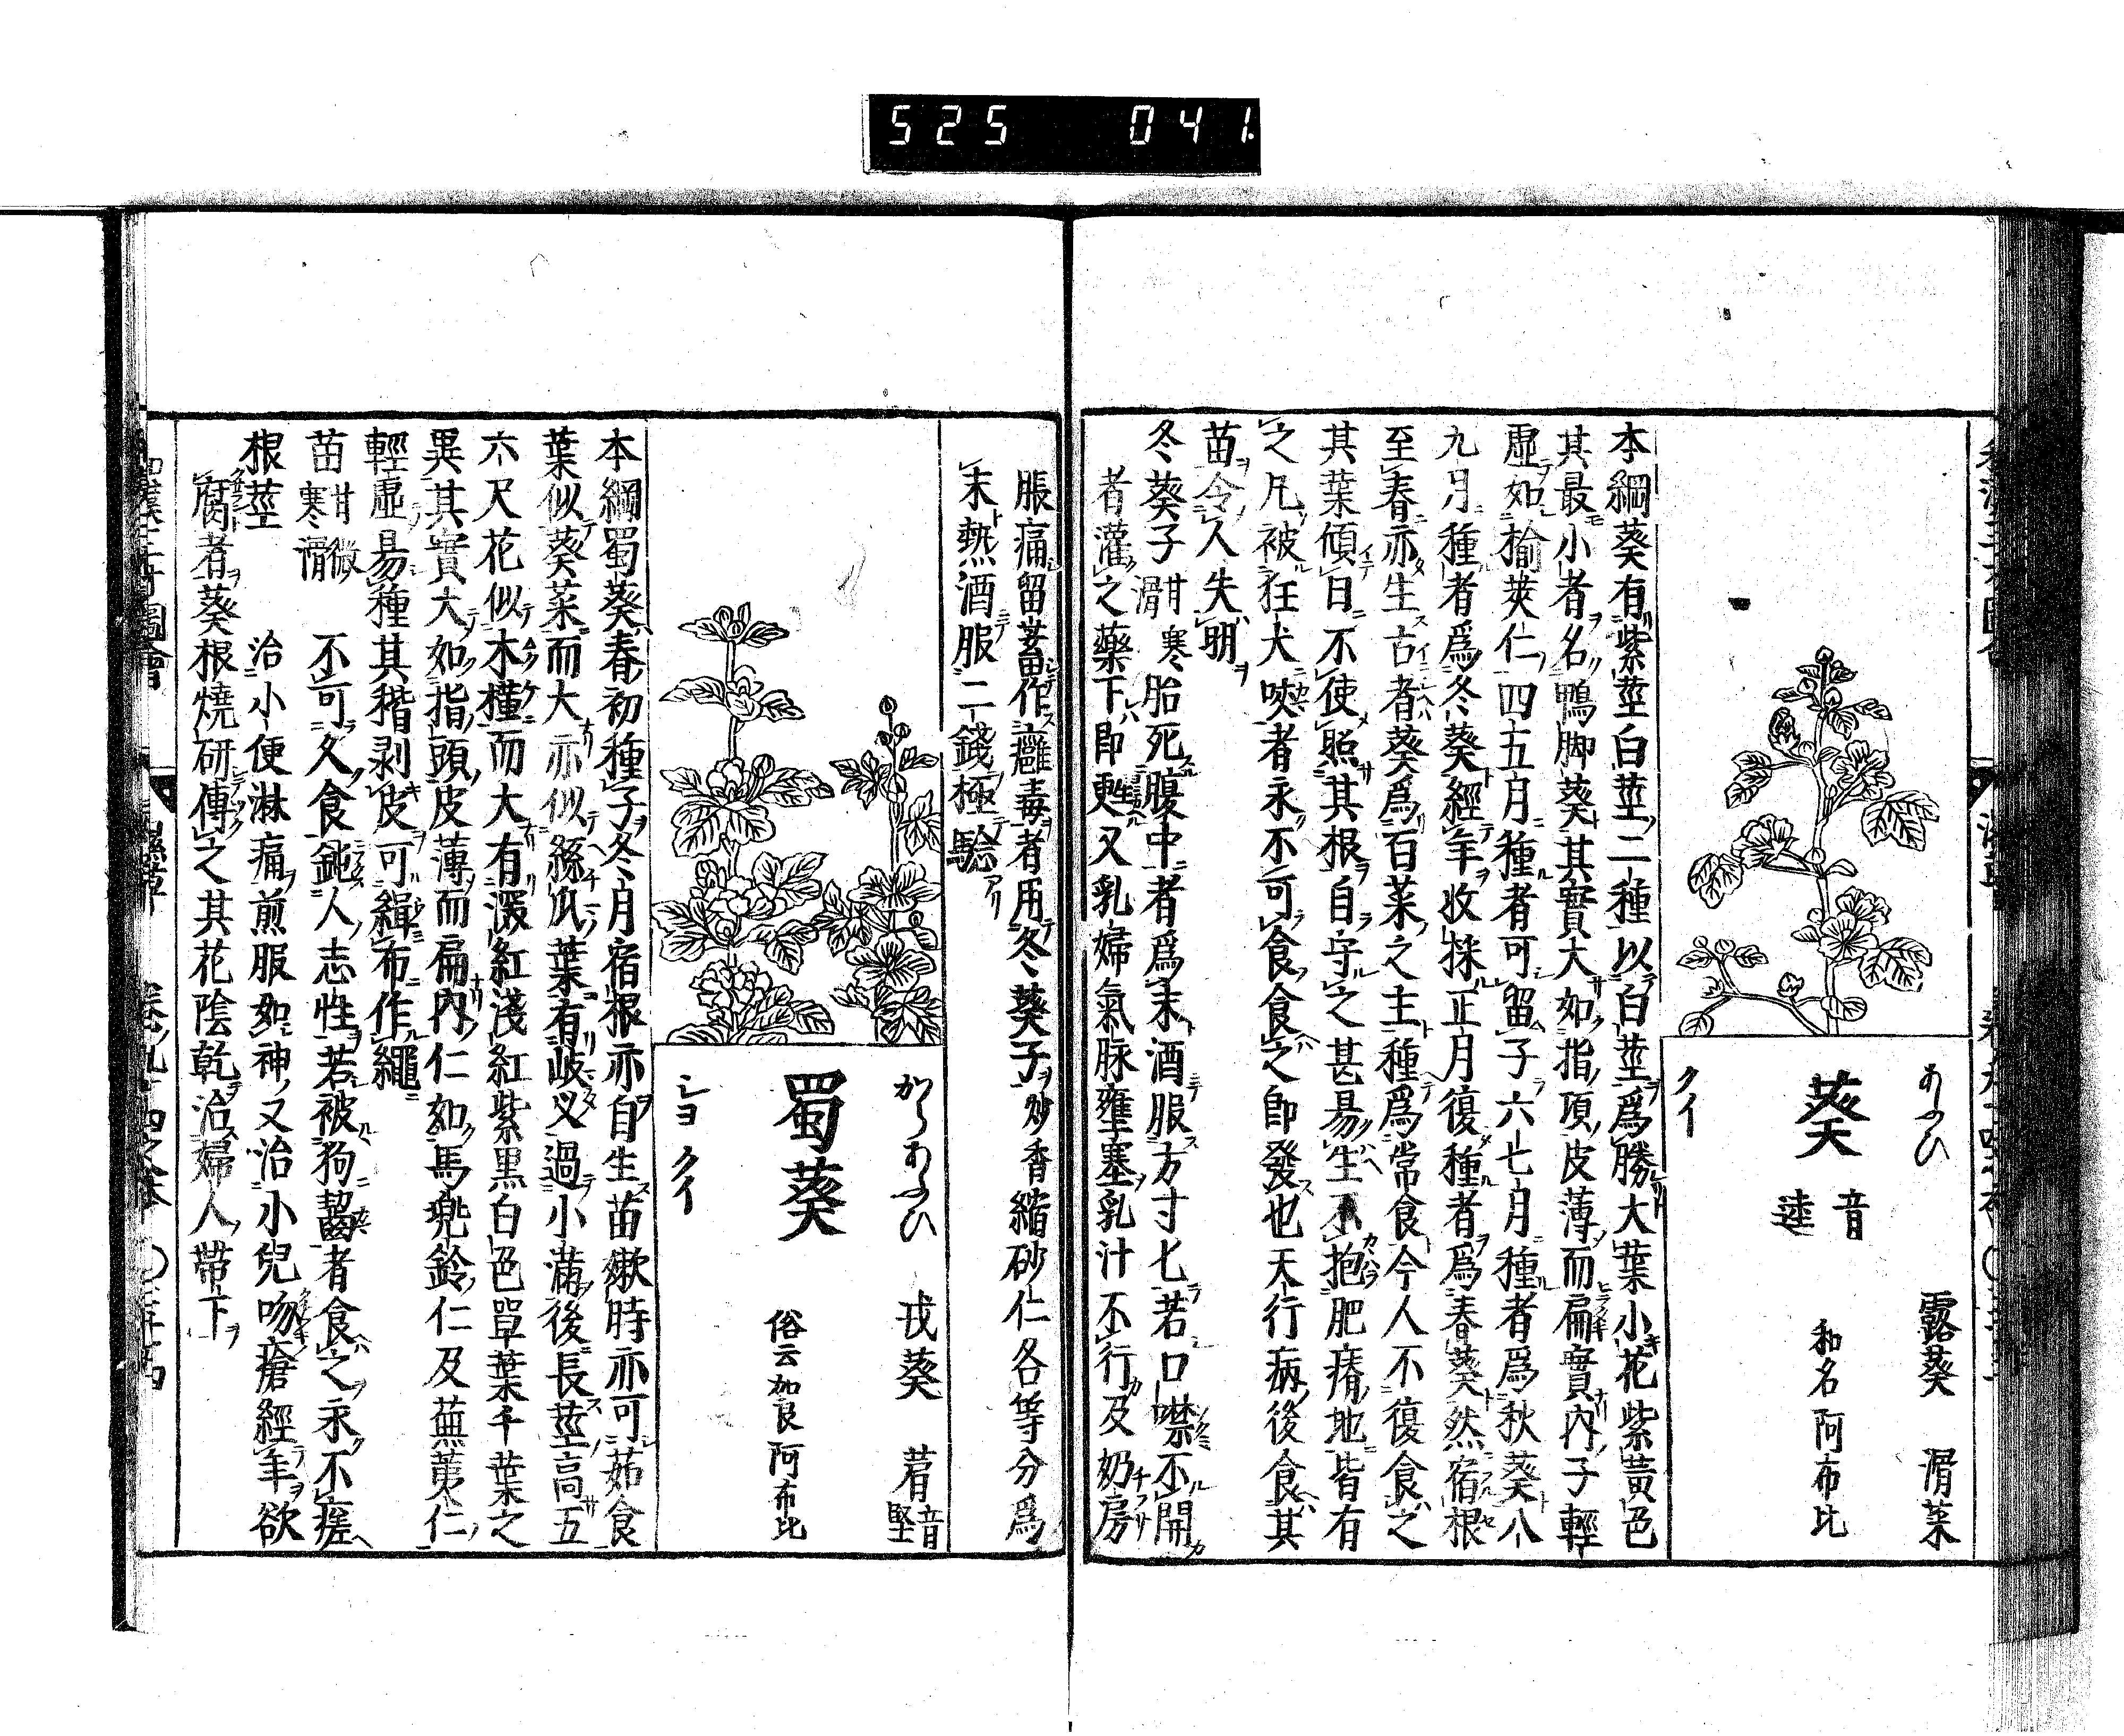 525 041.
あふひ 露葵 滑菜
葵 音逵 和名阿布比
クイ
本綱葵有紫莖白莖二種以白莖爲勝大葉小花紫黃色
其最小者名鴨脚葵其實大如指頂皮薄而扁實內子輕
虛如榆莢仁四五月種者可留子六七月種者爲秋葵八
九月種者爲冬葵經年收採正月復種者爲春葵然宿根
至春亦生古者葵爲百菜之主種爲常食今人不復食之
其葉傾日不使照其根自守之甚易生不抱肥瘠地皆有
之凡被狂犬咬者永不可食食之卽發也天行病後食其
苗令人失明
冬葵子 甘寒滑 胎死腹中者爲末酒服方寸匕若口噤不開
者灌之藥下卽甦又乳婦氣脉壅塞乳汁不行及奶房
脹痛留蓄作癰毒者用冬葵子炒香縮砂仁各等分爲
末熱酒服二錢極驗
からあふひ 戎葵 菺音堅
蜀葵 俗云加良阿布比
シヨクイ
本綱蜀葵春初種子冬月宿根亦自生苗嫩時亦可茹食
葉似葵菜而大亦似絲瓜葉有岐叉過小滿後長莖高五
六尺花似木槿而大有深紅淺紅紫黑白色單葉千葉之
異其實大如指頭皮薄而扁內仁如馬兜鈴仁及蕪荑仁
輕虛易種其稭剥皮可緝布作繩
苗 甘微寒滑 不可久食鈍人志性若被狗齧者食之永不瘥
根莖 治小便淋痛煎服如神又治小兒吻瘡經年欲
腐者葵根燒研傳之其花陰乾治婦人帶下